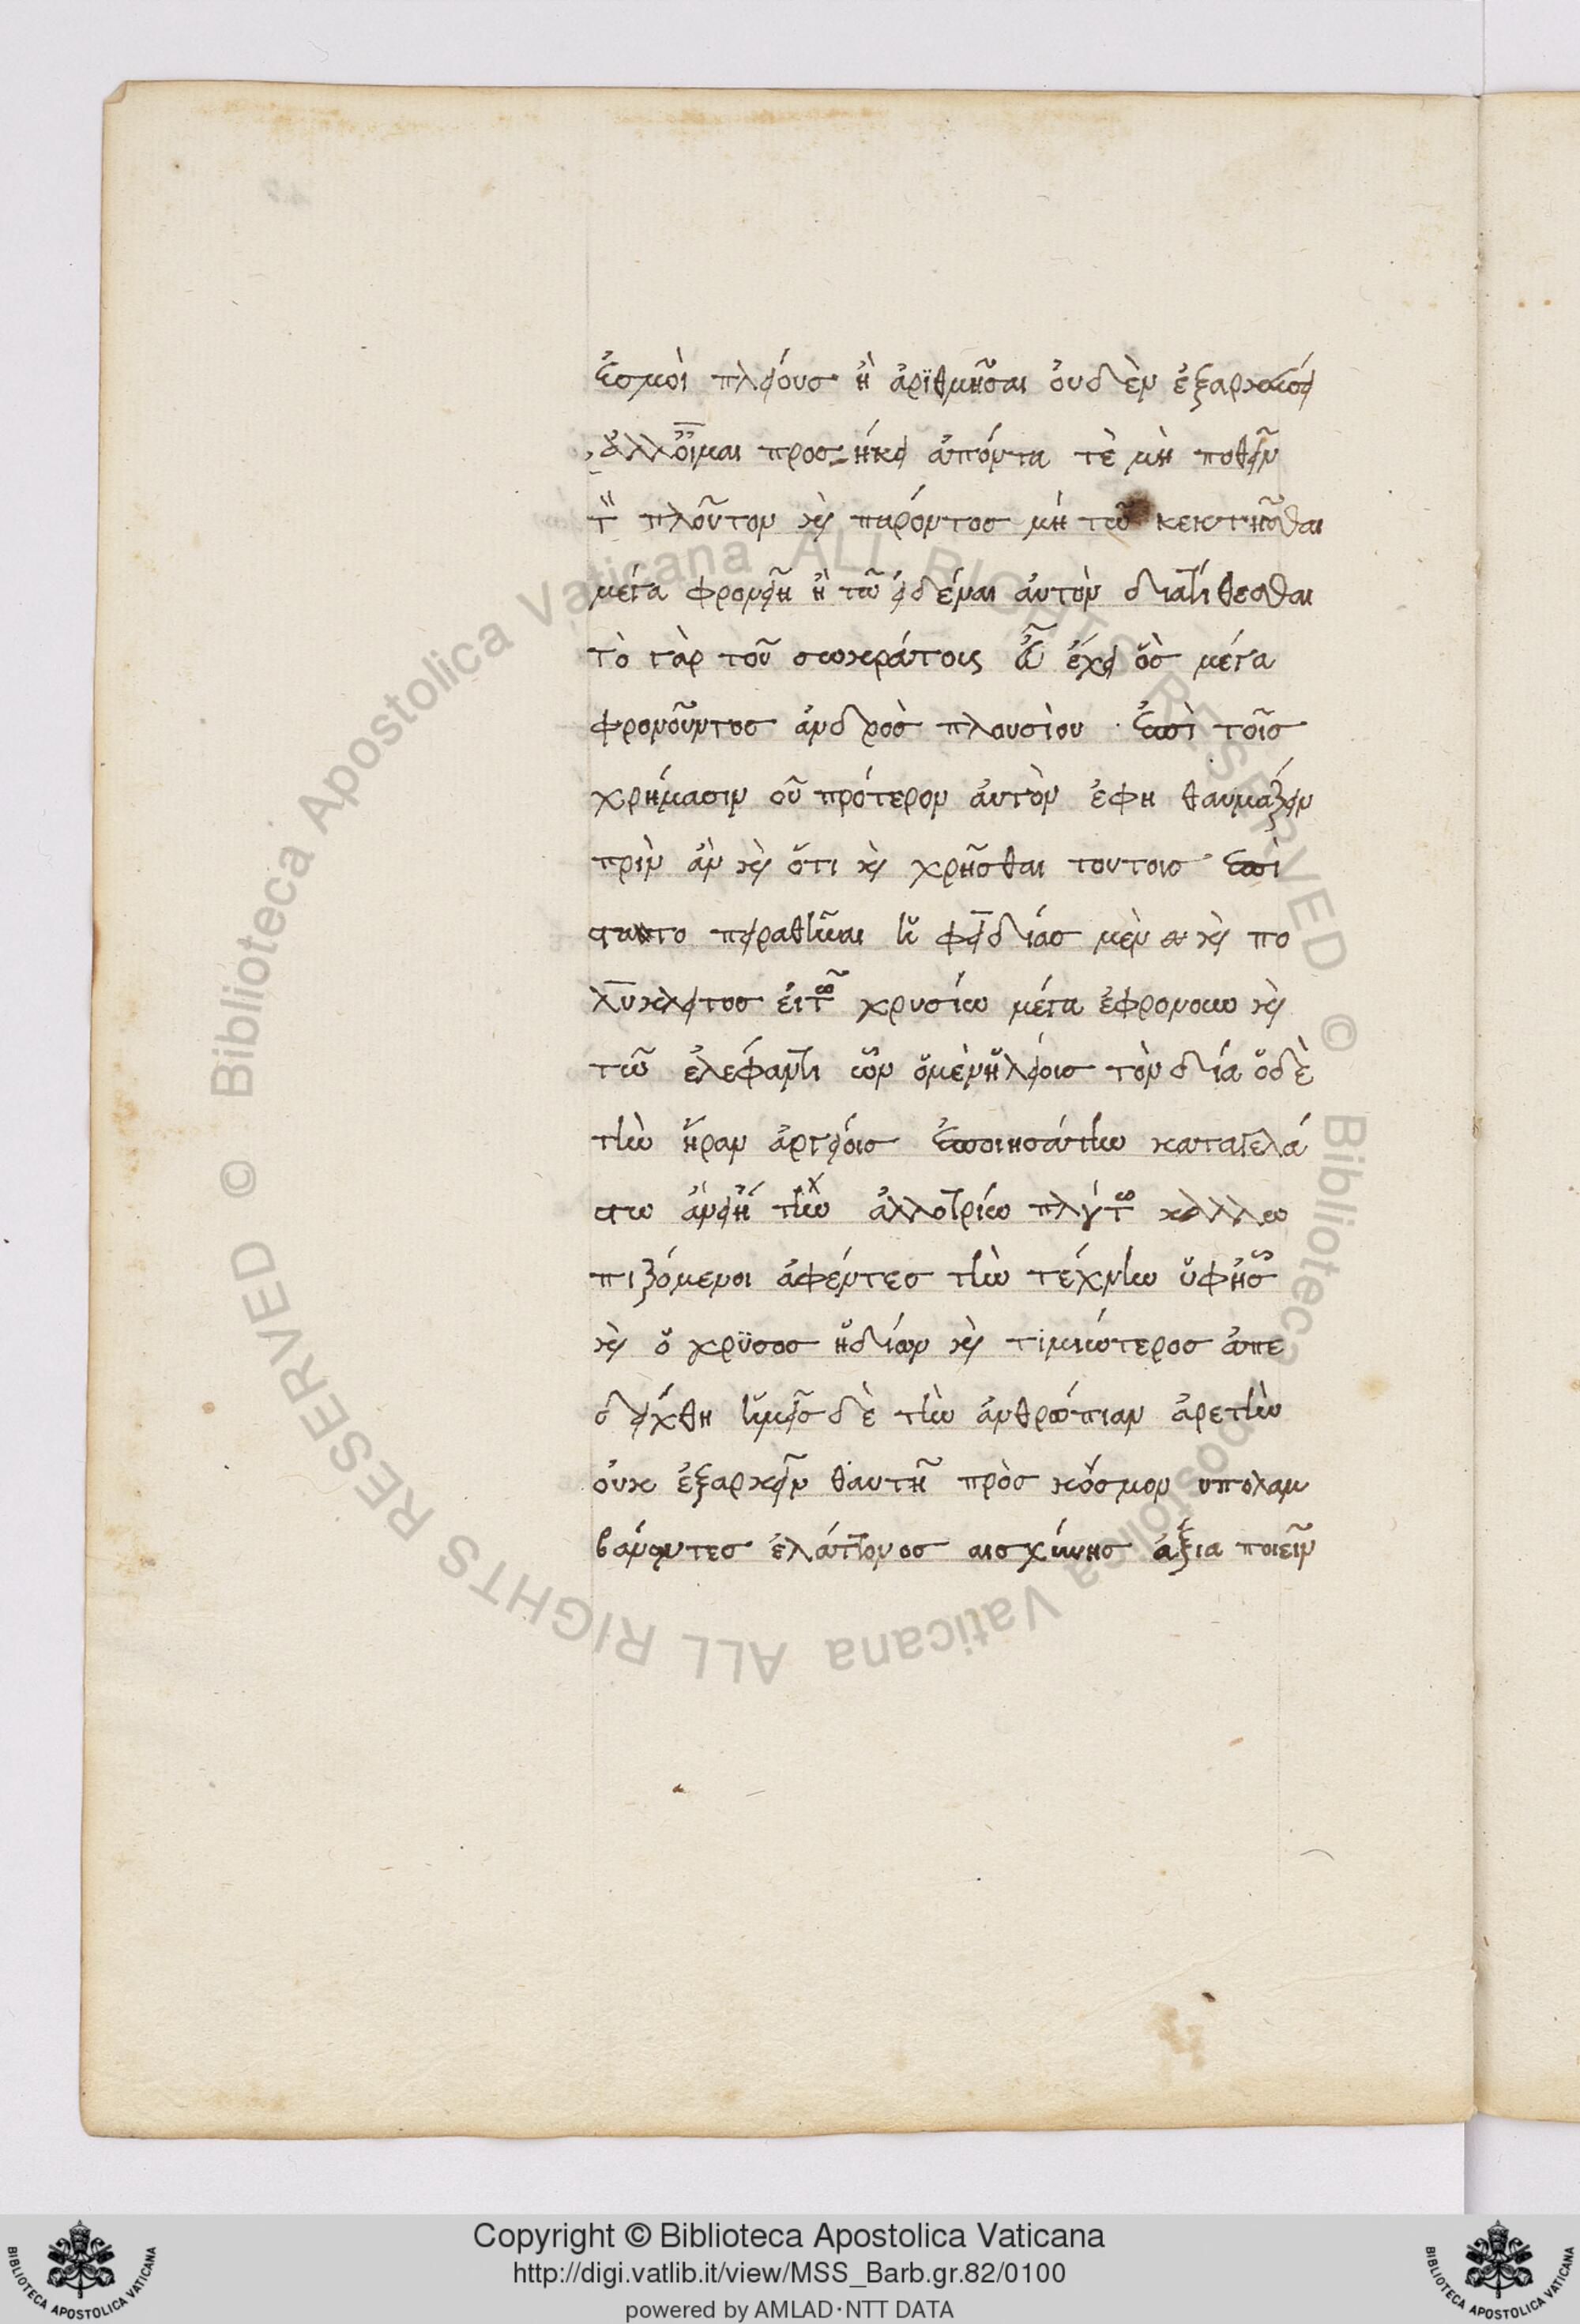 ἐσμοὶ πλείους ἢ ἀριθμῆσαι οὐδὲν ἐξαρκέσει
ἀλλ' οἶμαι προσήκει ἀπόντα τὲ μὴ ποθεῖν
τὸν πλοῦτον καὶ παρόντος μὴ τῶ κεκτῆσθαι
μέγα φρονεῖν ἢ τῶ εἰδέναι αὐτὸν διατίθεσθαι
τὸ γὰρ τοῦ σωκράτους εὖ ἔχει ὃς μέγα
φρονοῦντος ἀνδρὸς πλουσίου ἐπὶ τοῖς
χρήμασιν οὐ πρότερον αὐτὸν ἔφη θαυμάζειν
πρὶν ἂν καὶ ὅτι καὶ χρῆσθαι τουτοις ἐπὶ
σταιτο πειραθῆναι ἢ φειδίας μὲν καὶ πο
λύκλειτος εἰ τῶ χρυσίω μέγα ἐφρονουν καὶ
τῶ ἐλέφαντι ὧν ὁ μὲν ἠλείοις τὸν δία ὁ δὲ
τὴν ἥραν ἀργείοις ἐποιησάτην καταγελά
στω ἂν εἴ την ἀλλοτρίω πλούτω καλλω
πιζόμενοι ἀφέντες τὴν τέχνην ὑφ' ἧς
καὶ ὁ χρϋσος ἡδίων καὶ τιμιώτερος ἀπε
δείχθη ἡμεῖς δὲ τὴν ἀνθρώπιαν ἀρετὴν
οὐκ ἐξαρκεῖν θαυτῆ πρὸς κόσμον υπολαμ
βάνοντες ἐλάττονος αισχύνης ἄξια ποιεῖν
Copyright © Biblioteca Apostolica Vaticana
http://digi.vatlib.it/view/MSS_Barb.gr.82/0100
powered by AMLAD·NTT DATA